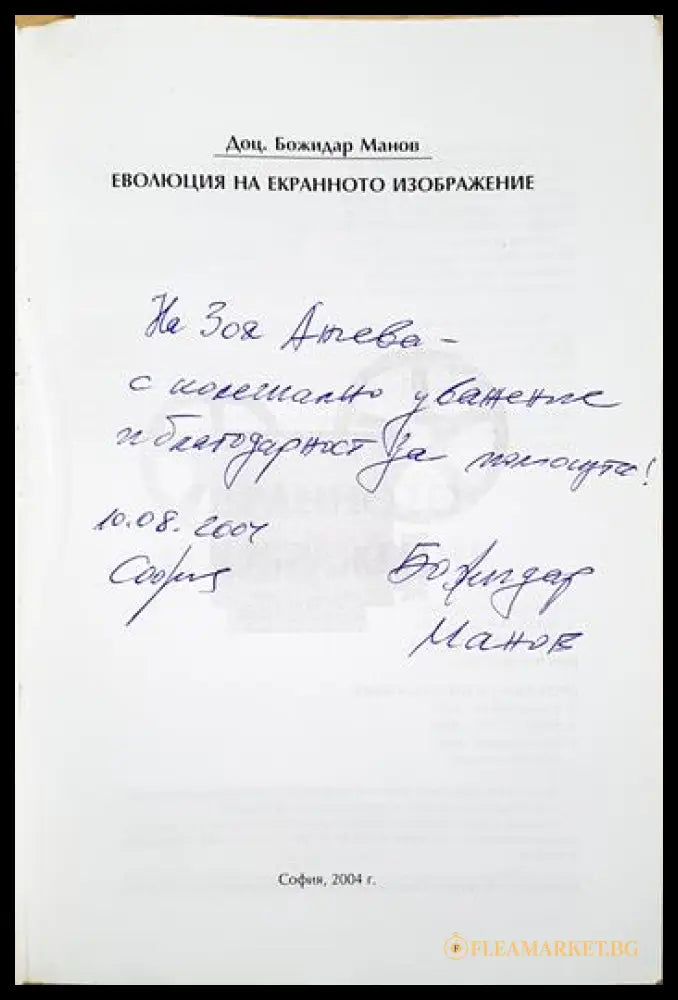 Доц. Божидар Манов
ЕВОЛЮЦИЯ НА ЕКРАННОТО ИЗОБРАЖЕНИЕ
На Зоя Анчева -
с колегиално уважение
и благодарност за помощта!
10.08.2004
София
Божидар
Манов
София, 2004 г.
FLEAMARKET.BG